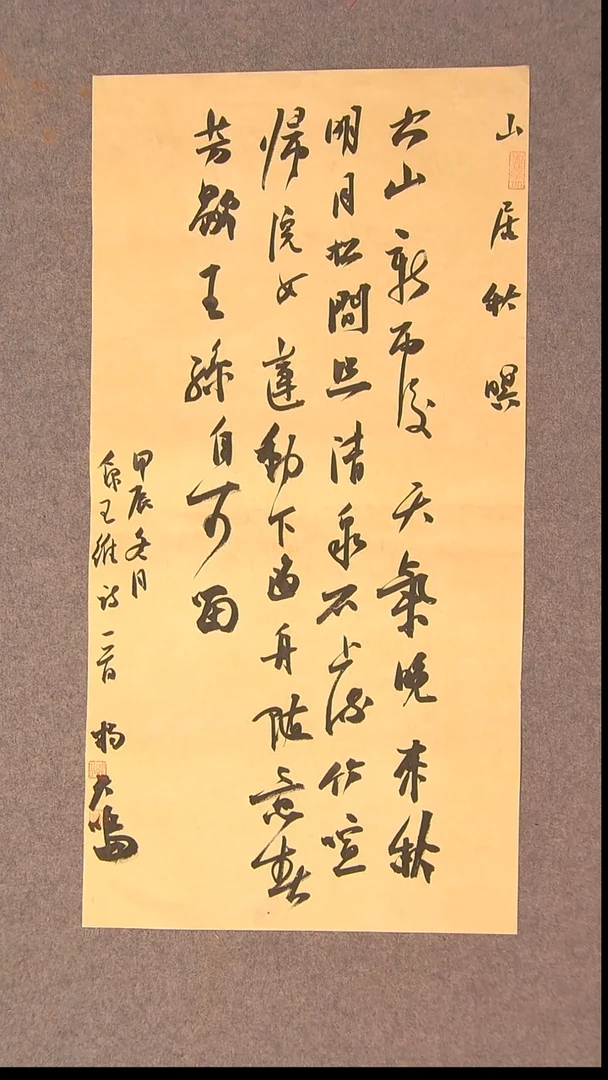 山居秋暝
空山新雨後天氣晚來秋
明月松間照清泉石上流竹喧
歸浣女蓮動下漁舟隨意春
芳歇王孫自可留
甲辰冬月
錄王維詩一首 楊大鳴